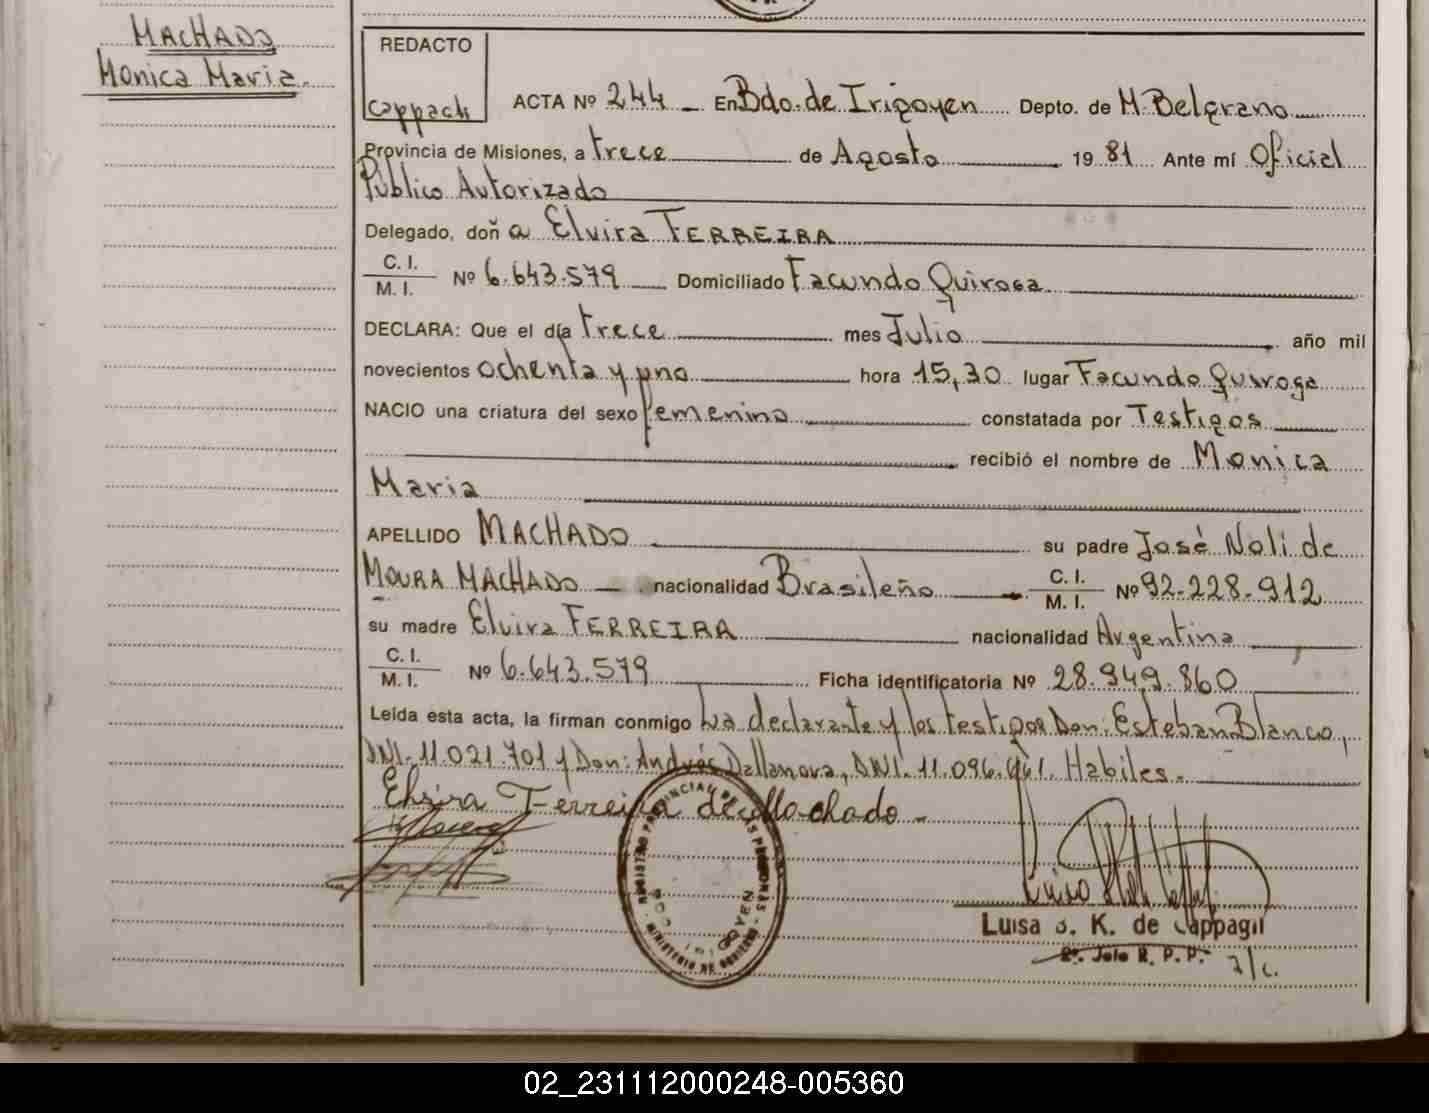 MACHADO
Monica Maria.
REDACTO
ACTA Nº 244 En Bdo. de Irigoyen Depto. de M. Belgrano
Provincia de Misiones, a trece de Agosto 1981 Ante mí Oficial
Público Autorizado
Delegado, doña Elvira FERREIRA
C. I.
M. I. Nº 6.643.579 Domiciliado Facundo Quiroga
DECLARA: Que el día trece mes Julio año mil
novecientos ochenta y uno hora 15,30 lugar Facundo Quiroga
NACIO una criatura del sexo femenino constatada por Testigos
recibió el nombre de Monica
Maria
APELLIDO MACHADO su padre José Noli de
MOURA MACHADO nacionalidad Brasileño C. I.
M. I. Nº 92.228.912
su madre Elvira FERREIRA nacionalidad Argentina
C. I.
M. I. Nº 6.643.579 Ficha identificatoria Nº 28.949.860
Leída esta acta, la firman conmigo La declarante y los testigos Don: Esteban Blanco,
DNI. 11.021.701 y Don: Andrés Dallanova, DNI. 11.096.961. Habiles.
Elvira Ferreira de Machado
REGISTRO PROVINCIAL DE LAS PERSONAS
MINISTERIO DE GOBIERNO
BDO. IRIGOYEN
Luisa S. K. de Cappagli
R. P. P. a/c.
02_231112000248-005360